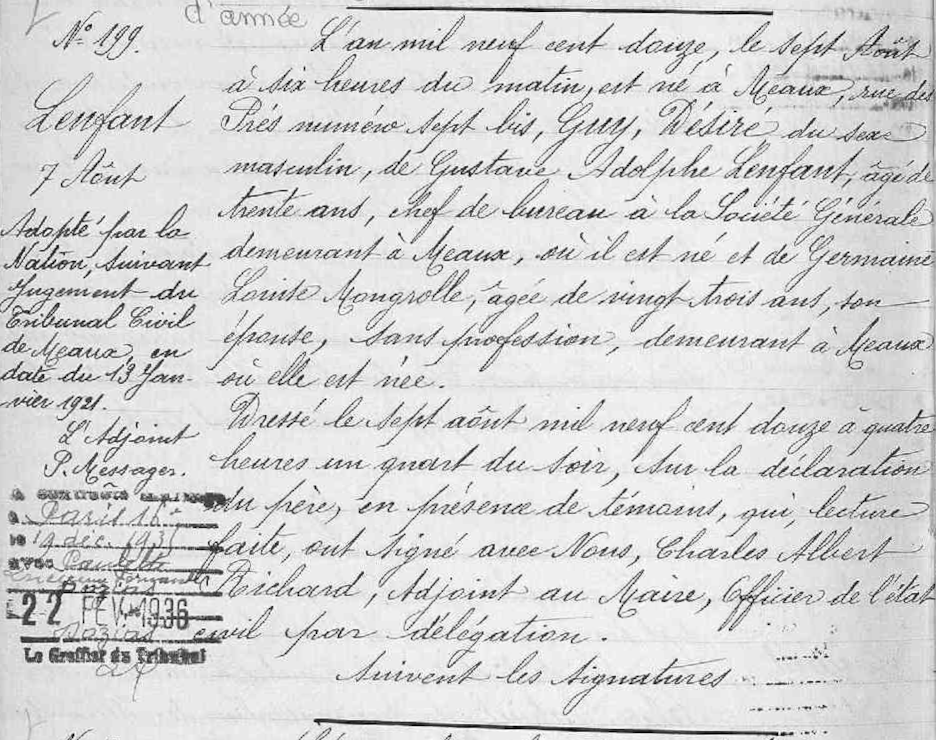 d'année
N° 199.
Lenfant
7 Août
Adopté par la
Nation, suivant
jugement du
Tribunal Civil
de Meaux, en
date du 13 Jan-
vier 1921.
L'Adjoint
P. Messager.
A contracté
à Paris 16e
le 19 déc. 1935
avec Paulette
22 FEV. 1936
Le Greffier du Tribunal
L'an mil neuf cent douze, le sept Août
à six heures du matin, est né à Meaux, rue des
Prés numéro sept bis, Guy, Désiré du sexe
masculin, de Gustave Adolphe Lenfant, âgé de
trente ans, chef de bureau à la Société Générale
demeurant à Meaux, où il est né et de Germaine
Louise Mongrolle, âgée de vingt trois ans, son
épouse, sans profession, demeurant à Meaux
où elle est née.
Dressé le sept août mil neuf cent douze à quatre
heures un quart du soir, sur la déclaration
du père, en présence de témoins, qui, lecture
faite, ont signé avec Nous, Charles Albert
Richard, Adjoint au Maire, Officier de l'état
civil par délégation.
Suivent les signatures